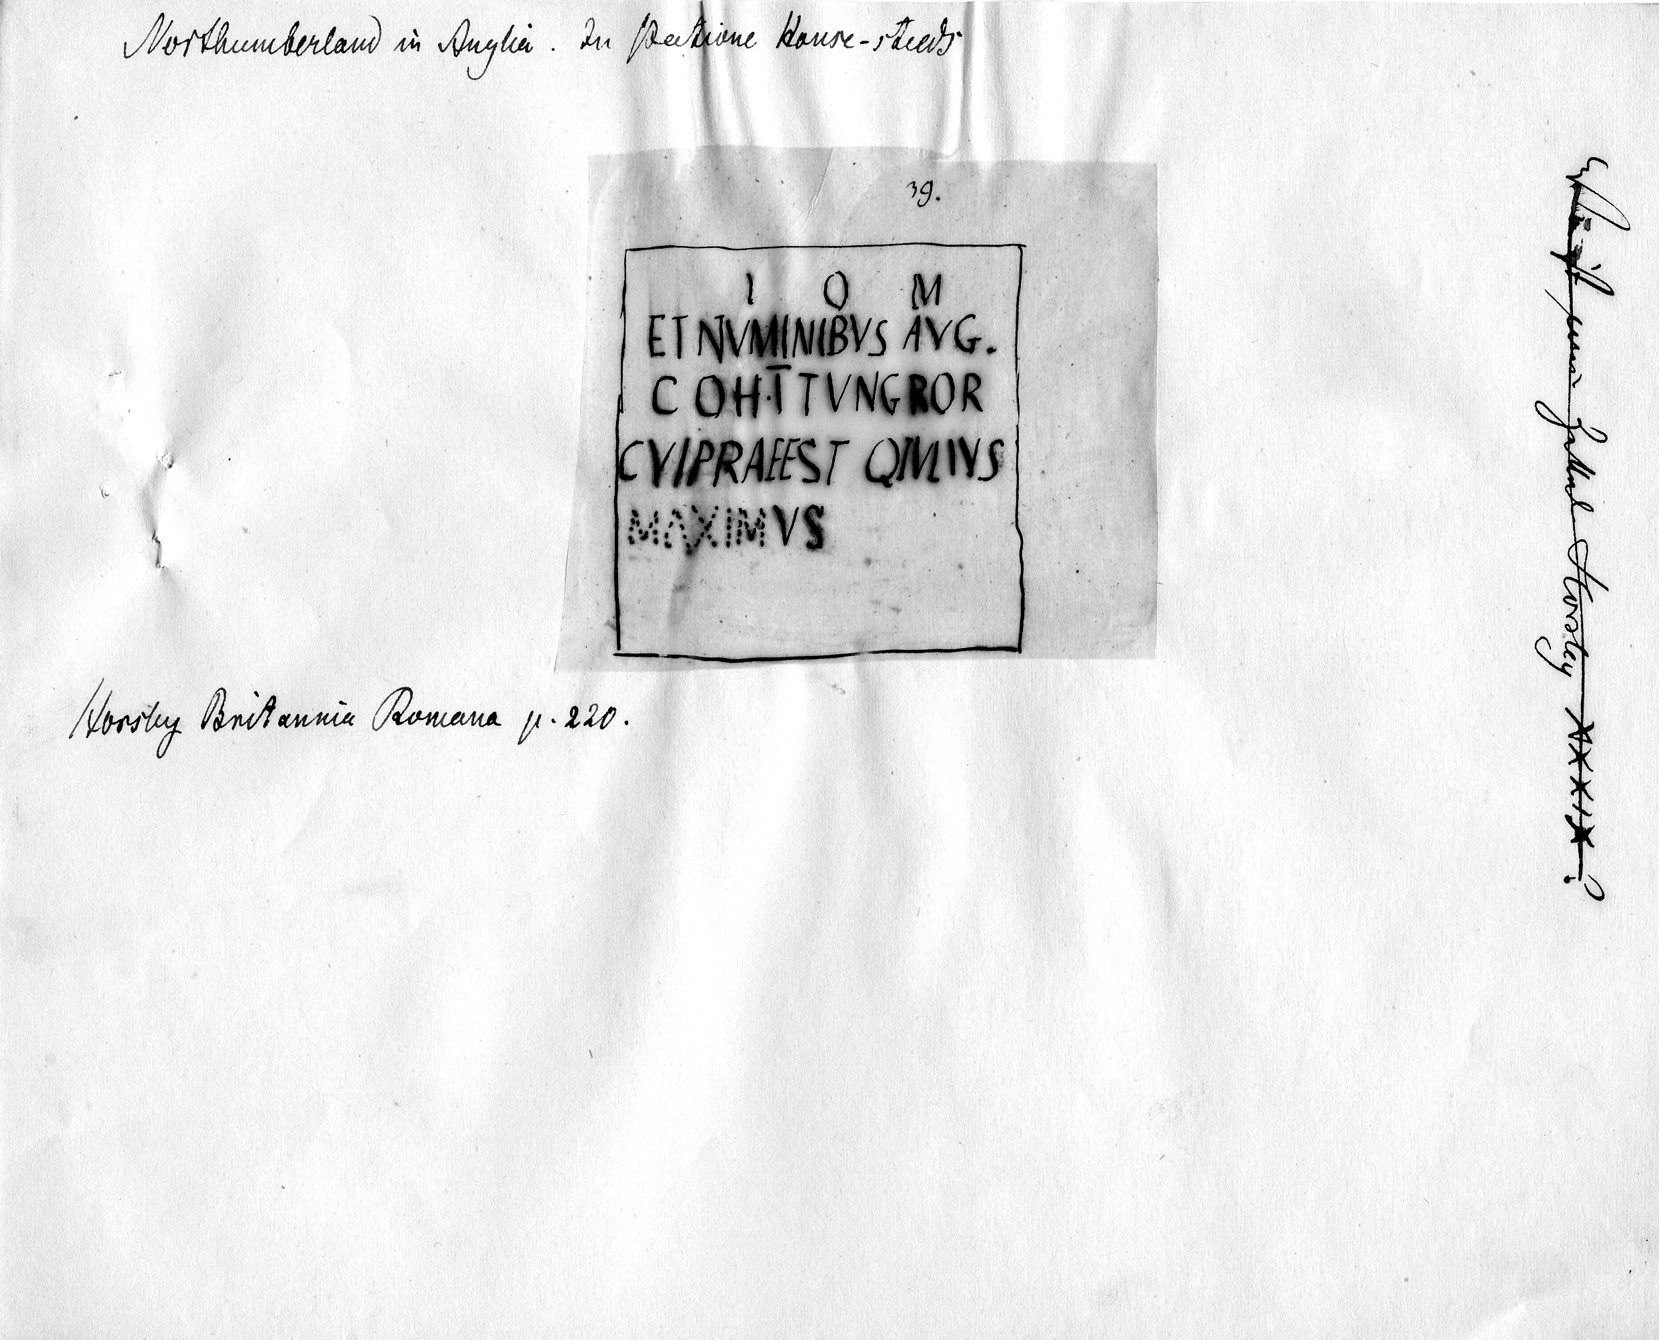 Northumberland in Anglia. In statione House-steeds
39.
I O M
ET NVMINIBVS AVG.
COH·I TVNGROR
CVIPRAEEST QIVLIVS
MAXIMVS
Horsley Britannia Romana p. 220.
Horsley XXXIX?